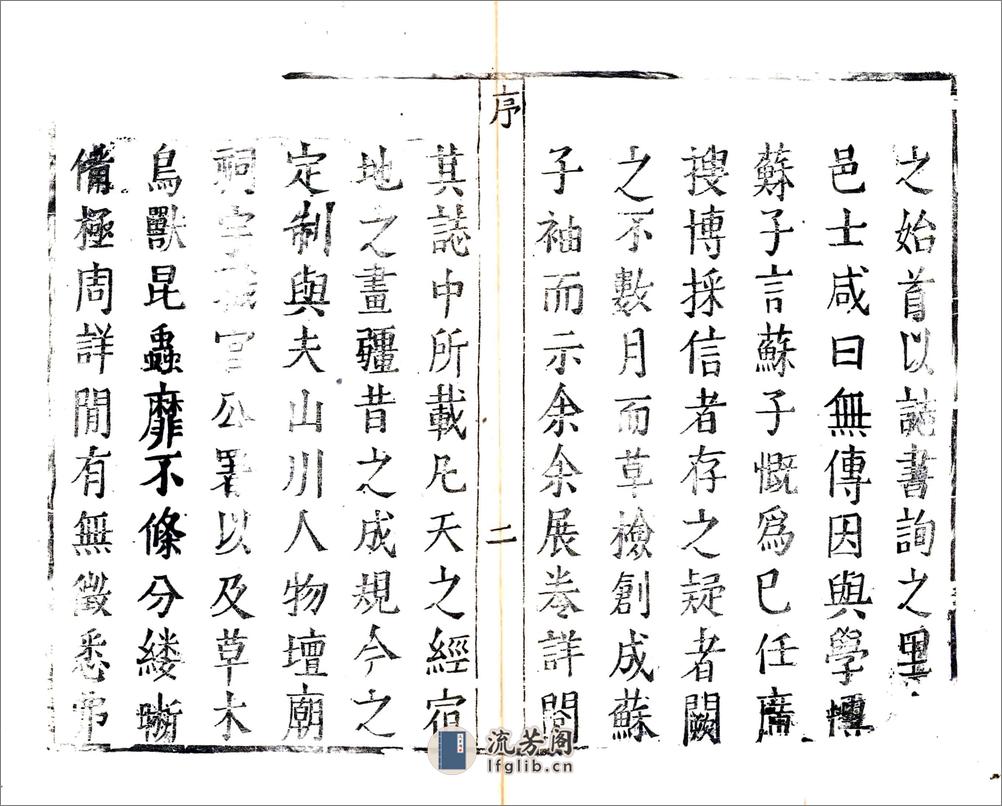 之始首以誌書詢之里
邑士咸曰無傳因與學博
蘇子言蘇子慨爲已任廣
搜博採信者存之疑者闕
之不數月而草檢創成蘇
子袖而示余余展卷詳閱
序
二
其誌中所載凡天之經宿
地之畫疆昔之成規今之
定制與夫山川人物壇廟
祠宇官公署以及草木
鳥獸昆蟲靡不條分縷晰
備極周詳間有無徵悉弗
流芳阁
lfglib.cn